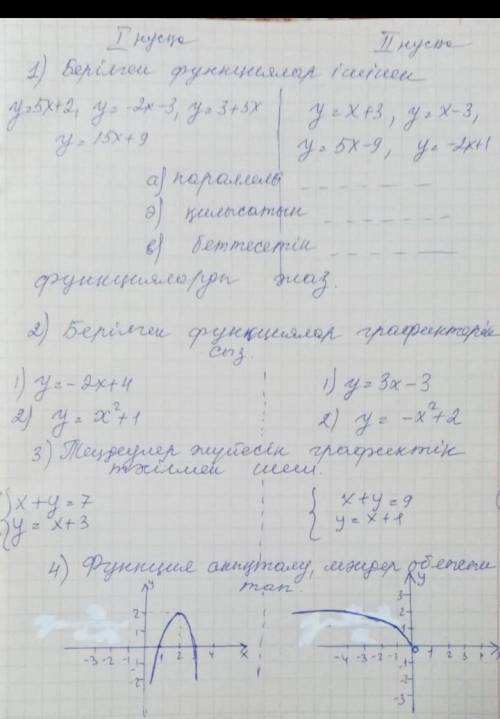 I нұсқа II нұсқа
1) Берілген функциялар ішінен
y=5x+2, y=-2x-3, y=3+5x y=x+3, y=x-3,
y=15x+9 y=5x-9, y=-2x+1
а) параллель
ә) қиылысатын
в) беттесетін
функцияларды жаз.
2) Берілген функциялар графиктерін
сыз.
1) y=-2x+4 1) y=3x-3
2) y=x²+1 2) y=-x²+2
3) Теңдеулер жүйесін графиктік
тәсілмен шеш.
{x+y=7 {x+y=9
y=x+3 y=x+1
4) Функция анықталу, мәндер облысын
тап.
y y
2 3 2 1
-3 -2 -1 1 2 3 x -4 -3 -2 -1 1 2 3
-2 -1 -3